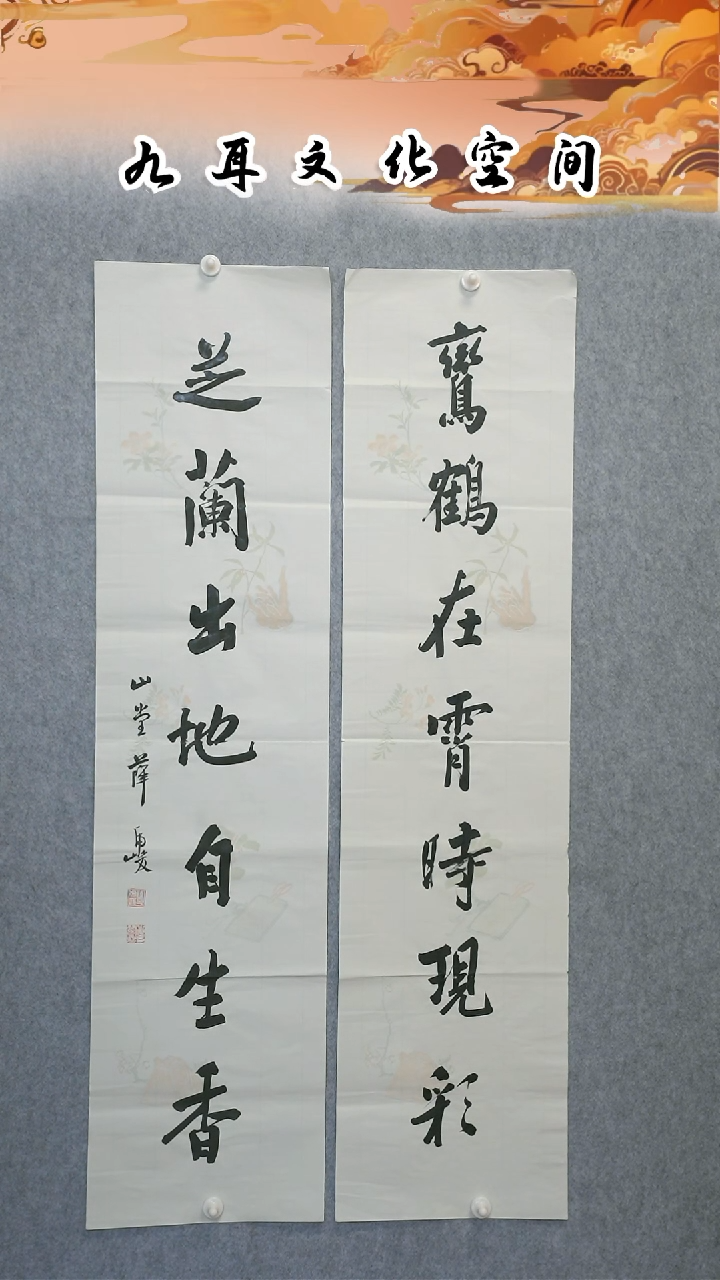 九耳文化空间
鸞鶴在霄時現彩
芝蘭出地自生香
山堂薛